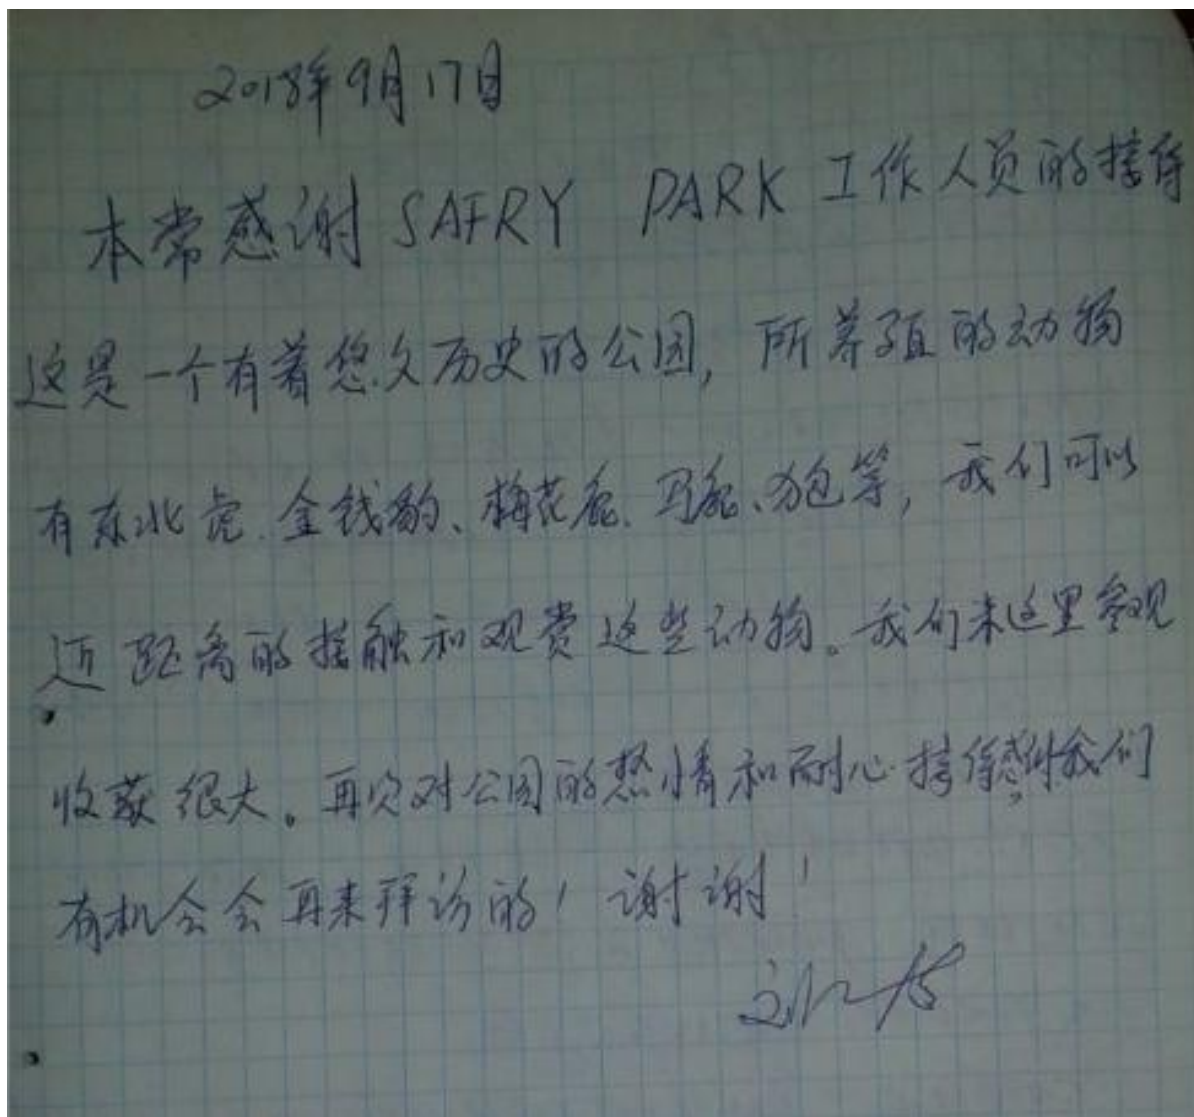 2018年9月17日
本常感谢 SAFRY PARK 工作人员的接待
这是一个有着悠久历史的公园, 所养殖的动物
有东北虎、金钱豹、梅花鹿、马鹿、狍等, 我们可以
近距离的接触和观赏这些动物。我们来这里参观
收获很大。再次对公园的热情和耐心接待感谢我们
有机会会再来拜访的! 谢谢!